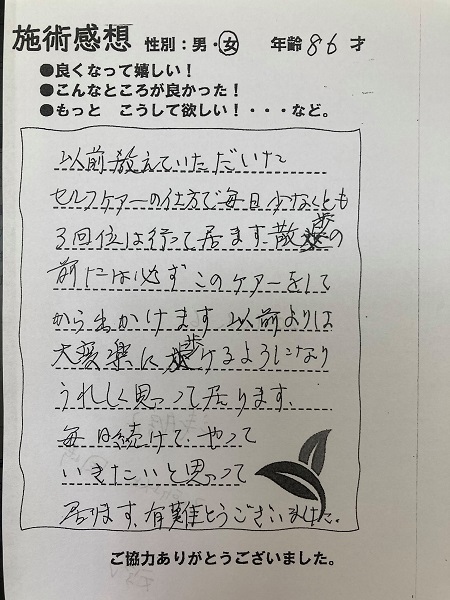 施術感想 性別：男・女 年齢 86 才
●良くなって嬉しい！
●こんなところが良かった！
●もっと こうして欲しい！・・・など。
以前教えていただいた
セルフケアーの仕方で毎日少なくとも
3回位は行って居ます、散歩の
前には必ずこのケアーをして
から出かけます 以前よりは
大変楽に歩けるようになり
うれしく思って居ります、
毎日続けて、やって
いきたいと思って
居ります、有難とうございました。
ご協力ありがとうございました。